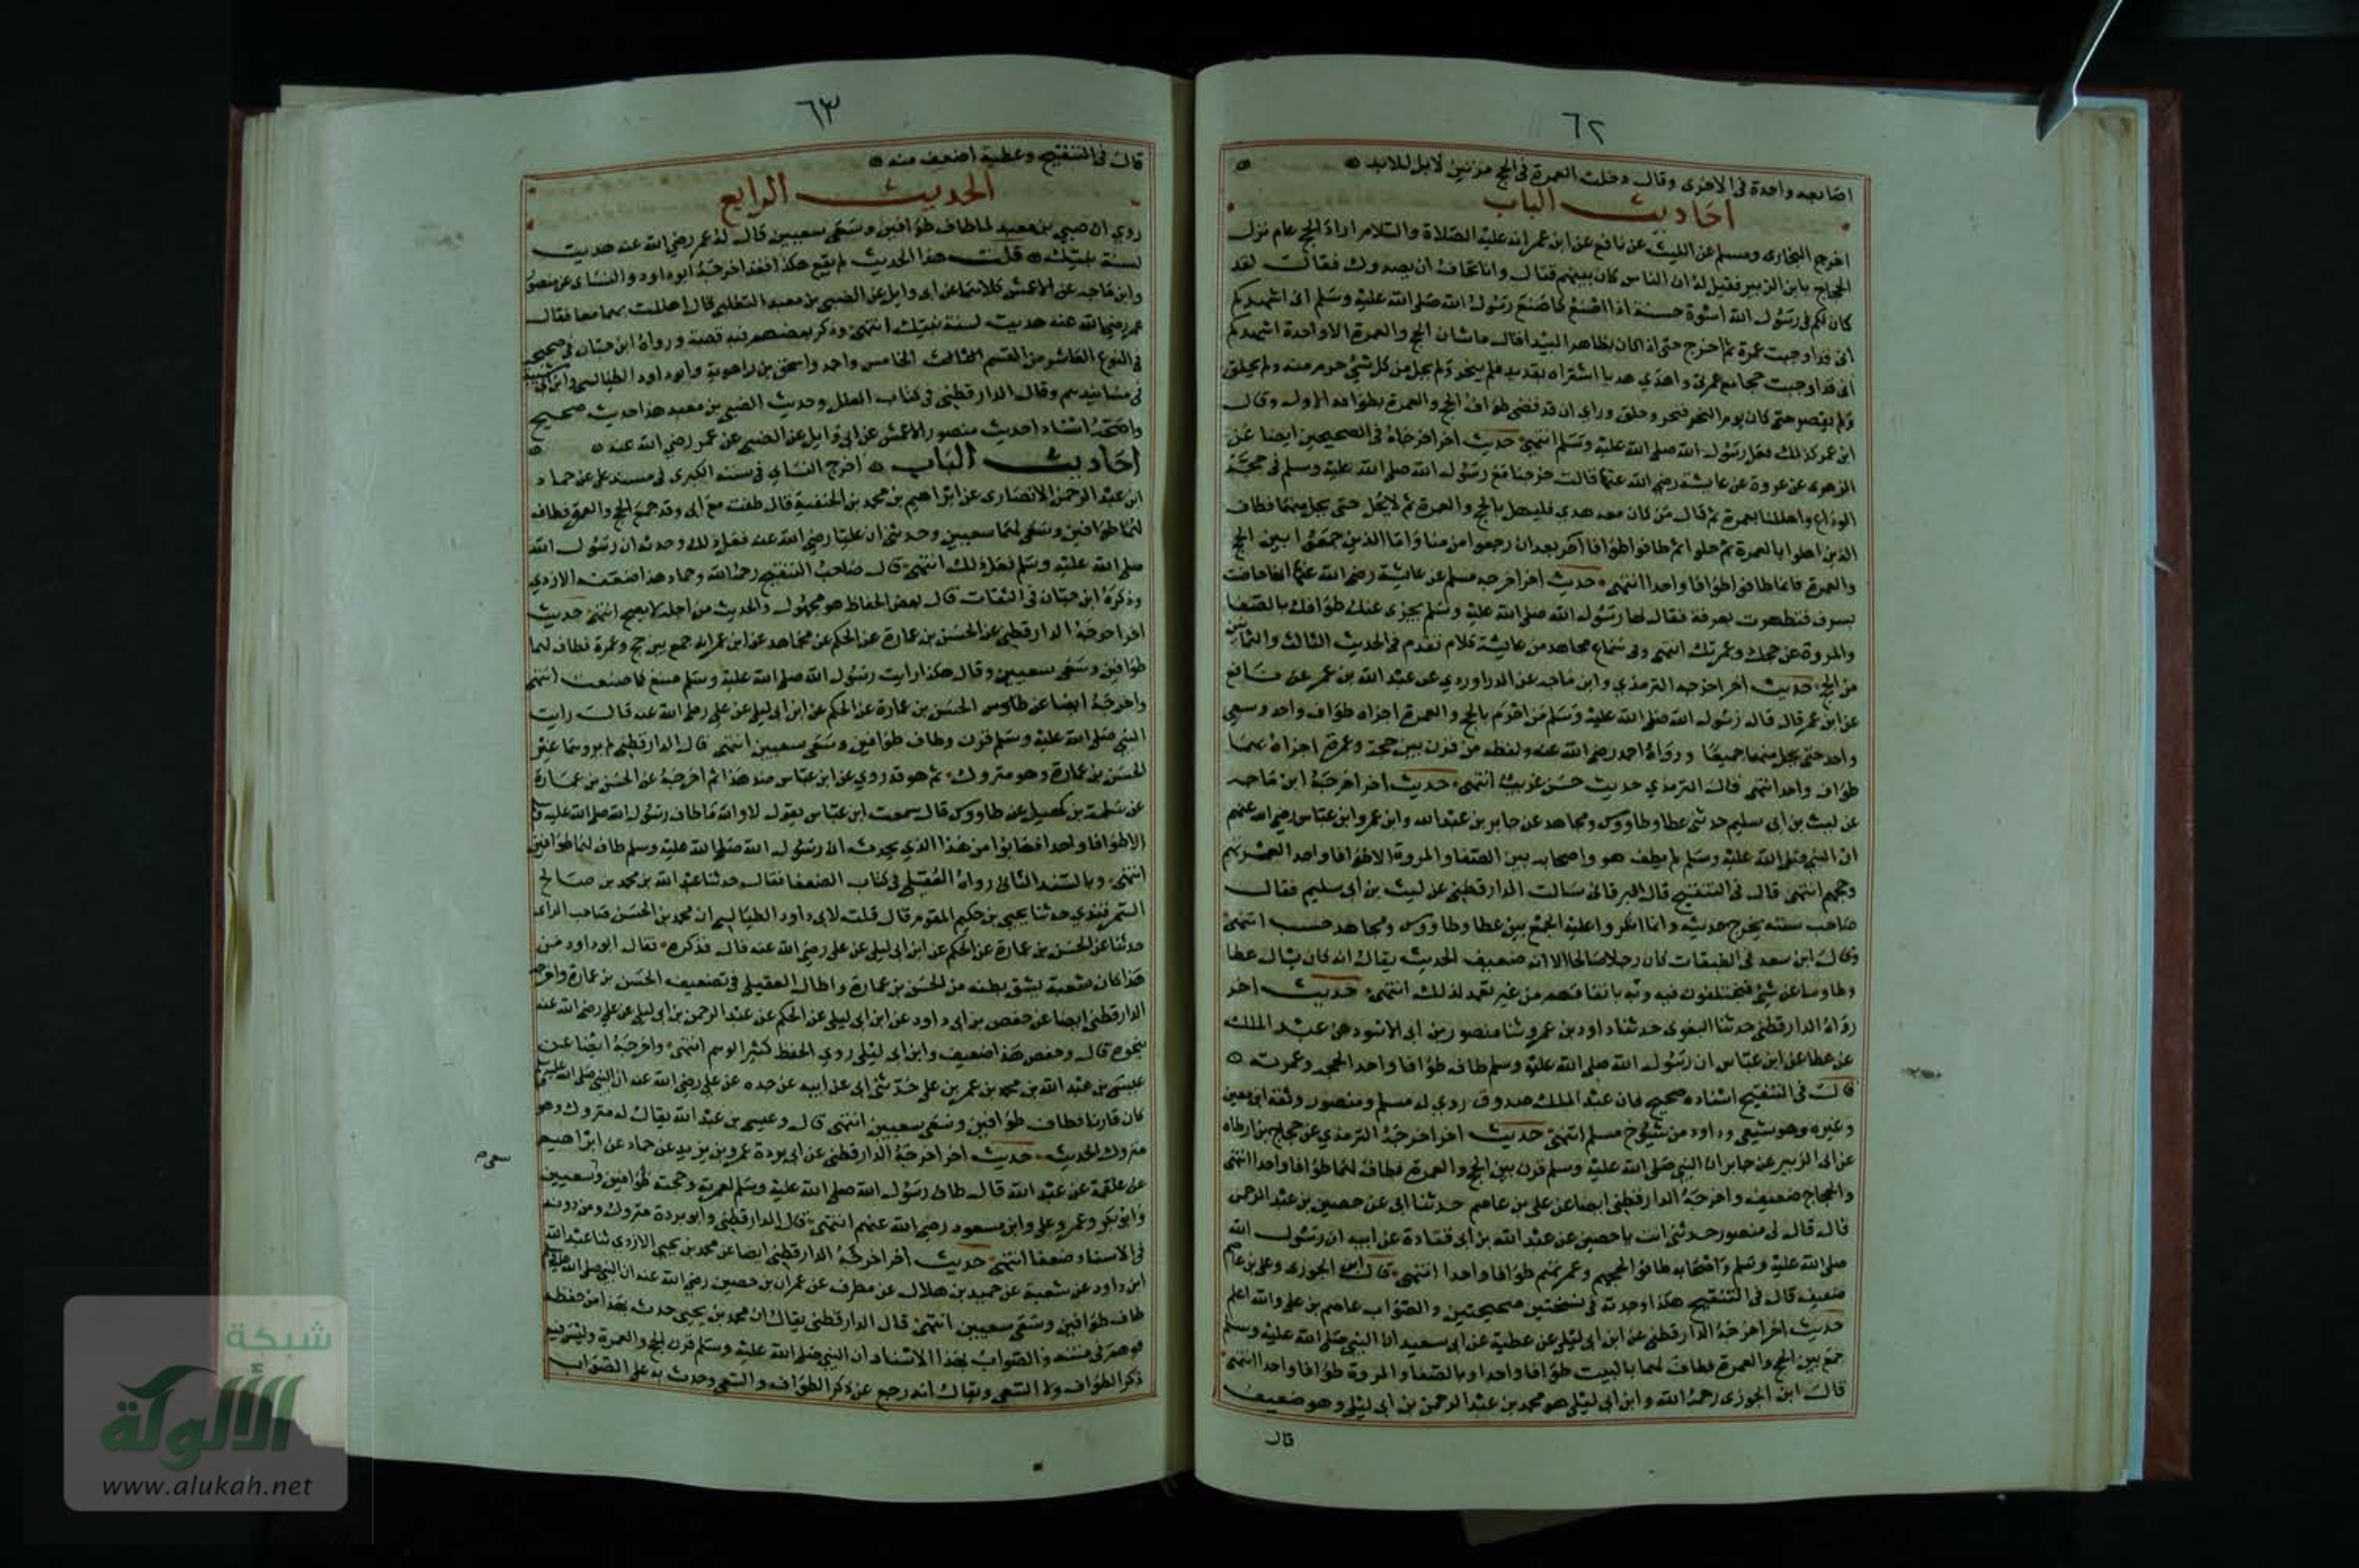 ٦٢
اصابعه واحدة في الاخرى وقال دخلت العمرة في الحج مرتين لا بل للابد
احاديث الباب
اخرج البخارى ومسلم عن الليث عن نافع عن ابن عمر انه عليه الصلاة والسلام اراد الحج عام نزل
الحجاج بابن الزبير فقيل له ان الناس كان بينهم قتال وانا نخاف ان يصدوك فقال لقد
كان لكم في رسول الله اسوة حسنة اذا اصنع كما صنع رسول الله صلى الله عليه وسلم انى اشهدكم
انى قد اوجبت عمرة ثم اخرج حتى اذا كان بظاهر البيدا قال ما شان الحج والعمرة الا واحدة اشهدكم
انى قد اوجبت حجا مع عمرتى واهدى هديا اشتراه بقديد فلم ينحر ولم يحل من كل شئ حرم منه ولم يحلق
ولم يقصر حتى كان يوم النحر فنحر وحلق وراى ان قد قضى طواف الحج والعمرة بطوافه الاول وقال
ابن عمر كذلك فعل رسول الله صلى الله عليه وسلم انتهى حديث اخر اخرجاه في الصحيحين ايضا عن
الزهرى عن عروة عن عايشة رضي الله عنها قالت خرجنا مع رسول الله صلى الله عليه وسلم في حجة
الوداع واهللنا بعمرة ثم قال من كان معه هدي فليهل بالحج والعمرة ثم لا يحل حتى يحل منهما فطاف
الذين اهلوا بالعمرة ثم حلوا ثم طافوا طوافا آخر بعد ان رجعوا من منا واما الذين جمعوا بين الحج
والعمرة فانما طافوا طوافا واحدا انتهى حديث اخر اخرجه مسلم عن عايشة رضي الله عنها انها حاضت
بسرف فتطهرت بعرفة فقال لها رسول الله صلى الله عليه وسلم يجزى عنك طوافك بالصفا
والمروة عن حجك وعمرتك انتهى وفى سماع مجاهد من عايشة كلام تقدم في الحديث الثالث والثامن
من الحج حديث اخر اخرجه الترمذي وابن ماجه عن الدراوردي عن عبد الله بن عمر عن نافع
عن ابن عمر قال قال رسول الله صلى الله عليه وسلم من احرم بالحج والعمرة اجزاه طواف واحد وسعى
واحد حتى يحل منهما جميعا ورواه احمد رضي الله عنه ولفظه من قرن بين حجة وعمرة اجزاه لهما
طواف واحد انتهى قال الترمذي حديث حسن غريب انتهى حديث اخر اخرجه ابن ماجه
عن ليث بن ابى سليم حدثنى عطا وطاووس ومجاهد عن جابر بن عبد الله وابن عمر وابن عباس رضي الله عنهم
ان النبي صلى الله عليه وسلم لم يطف هو واصحابه بين الصفا والمروة الا طوافا واحدا لعمرتهم
وحجهم انتهى قال في التنقيح قال البرقانى سالت الدارقطنى عن ليث بن ابى سليم فقال
صاحب سنة يخرج حديثه وانما انكروا عليه الجمع بين عطا وطاووس ومجاهد حسب انتهى
وقال ابن سعد في الطبقات كان رجلا صالحا الا انه ضعيف الحديث يقال انه كان يسال عطا
وطاوسا عن شئ فيختلفون فيه وياتى باتفاقهم من غير تعمد لذلك انتهى حديث اخر
رواه الدارقطنى حدثنا البغوى حدثنا داود بن عمرو ثنا منصور بن ابى الاسود عن عبد الملك
عن عطا عن ابن عباس ان رسول الله صلى الله عليه وسلم طاف طوافا واحدا لحجه وعمرته
قال في التنقيح اسناده صحيح فان عبد الملك صدوق روى له مسلم ومنصور وثقه ابن معين
وغيره وهو شيعى وداود من شيوخ مسلم انتهى حديث اخر اخرجه الترمذي عن حجاج بن ارطاه
عن ابى الزبير عن جابر ان النبي صلى الله عليه وسلم قرن بين الحج والعمرة فطاف لهما طوافا واحدا انتهى
والحجاج ضعيف واخرجه الدارقطنى ايضا عن على بن عاصم حدثنا ابى عن حصين بن عبد الرحمن
قال قال لى منصور حدثنى انت يا حصين عن عبد الله بن ابى قتادة عن ابيه ان رسول الله
صلى الله عليه وسلم واصحابه طافوا لحجهم وعمرتهم طوافا واحدا انتهى قال ابن الجوزى وعلى بن عاصم
ضعيف قال في التنقيح هكذا وجدته في نسختين صحيحتين والصواب عاصم بن على والله اعلم
حديث اخر اخرجه الدارقطنى عن ابن ابى ليلى عن عطية عن ابى سعيد ان النبي صلى الله عليه وسلم
جمع بين الحج والعمرة فطاف لهما بالبيت طوافا واحدا وبالصفا والمروة طوافا واحدا انتهى
قال ابن الجوزى رحمه الله وابن ابى ليلى هو محمد بن عبد الرحمن بن ابى ليلى وهو ضعيف
قال
٦٣
قال في التنقيح وعطية اضعف منه
الحديث الرابع
روي ان صبي بن معبد لما طاف طوافين وسعى سعيين قال له عمر رضي الله عنه هديت
لسنة نبيك قلت هذا الحديث لم يقع هكذا فقد اخرجه ابوداود والنساى عن منصور
وابن ماجه عن الاعمش كلاهما عن ابى وايل عن الصبى بن معبد التغلبى قال اهللت بهما معا فقال
عمر رضي الله عنه هديت لسنة نبيك انتهى وذكر بعضهم فيه قصة ورواه ابن حبان في صحيحه
في النوع العاشر من القسم الخامس واحمد واسحق بن راهوية وابو داود الطيالسى وابن ابى شيبة
في مسانيدهم وقال الدارقطنى في كتاب العلل وحديث الصبى بن معبد هذا حديث صحيح
واصحه اسنادا حديث منصور والاعمش عن ابى وايل عن الصبى عن عمر رضي الله عنه
احاديث الباب اخرج النساى في سننه الكبرى في مسند على عن حماد
ابن عبد الرحمن الانصارى عن ابراهيم بن محمد بن الحنفية قال طفت مع ابى وقد جمع الحج والعمرة فطاف
لهما طوافين وسعى لهما سعيين وحدثنى ان عليا رضي الله عنه فعل ذلك وحدثه ان رسول الله
صلى الله عليه وسلم فعل ذلك انتهى قال صاحب التنقيح رحمه الله وحماد هذا ضعفه الازدي
وذكره ابن حبان في الثقات قال بعض الحفاظ هو مجهول والحديث من اجله لا يصح انتهى حديث
اخر اخرجه الدارقطنى عن الحسن بن عمارة عن الحكم عن مجاهد عن ابن عمر انه جمع بين حج وعمرة فطاف لهما
طوافين وسعى سعيين وقال هكذا رايت رسول الله صلى الله عليه وسلم صنع كما صنعت انتهى
واخرجه ايضا عن الحسن بن عمارة عن الحكم عن ابن ابى ليلى عن على رضي الله عنه قال رايت
النبي صلى الله عليه وسلم قرن وطاف طوافين وسعى سعيين انتهى قال الدارقطنى لم يروهما غير
الحسن بن عمارة وهو متروك ثم هو قد روي عن ابن عباس ضد هذا ثم اخرجه عن الحسن بن عمارة
عن سلمة بن كهيل عن طاووس قال سمعت ابن عباس يقول لا والله ما طاف رسول الله صلى الله عليه وسلم
الا طوافا واحدا فهاتوا من هذا الذي يحدث ان رسول الله صلى الله عليه وسلم طاف لهما طوافين
انتهى وبالسند الثانى رواه العقيلى في كتاب الضعفا فقال حدثنا عبد الله بن محمد بن صالح
السمرقندي حدثنا يحيى بن حكيم المقوم قال قلت لابى داود الطيالسى ان محمد بن الحسن صاحب الراى
حدثنا عن الحسن بن عمارة عن الحكم عن ابن ابى ليلى عن على رضي الله عنه قال فذكره فقال ابو داود من
هذا كان شعبة يشق بطنه من الحسن بن عمارة واطال العقيلى في تضعيف الحسن بن عمارة واخرجه
الدارقطنى ايضا عن حفص بن ابى داود عن ابن ابى ليلى عن الحكم عن عبد الرحمن بن ابى ليلى عن على رضي الله عنه
بنحوه قال وحفص هذا ضعيف وابن ابى ليلى ردي الحفظ كثير الوهم انتهى واخرجه ايضا عن
عيسى بن عبد الله بن محمد بن عمر بن على حدثنى ابى عن ابيه عن جده عن على رضي الله عنه ان النبي صلى الله عليه وسلم
كان قارنا فطاف طوافين وسعى سعيين انتهى قال وعيسى بن عبد الله يقال له متروك وهو
متروك الحديث حديث اخر اخرجه الدارقطنى عن ابى بردة عمرو بن يزيد عن حماد عن ابراهيم
عن علقمة عن عبد الله قال طاف رسول الله صلى الله عليه وسلم لعمرته وحجته طوافين وسعيين
وابو بكر وعمر وعلى وابن مسعود رضي الله عنهم انتهى قال الدارقطنى وابو بردة متروك ومن دونه
في الاسناد ضعفا انتهى حديث اخر اخرجه الدارقطنى ايضا عن محمد بن يحيى الازدى ثنا عبد الله
ابن داود عن شعبة عن حميد بن هلال عن مطرف عن عمران بن حصين رضي الله عنه ان النبي صلى الله عليه وسلم
طاف طوافين وسعى سعيين انتهى قال الدارقطنى يقال ان محمد بن يحيى حدث بهذا من حفظه
فوهم في متنه والصواب بهذا الاسناد ان النبي صلى الله عليه وسلم قرن الحج والعمرة وليس فيه
ذكر الطواف ولا السعى ويقال انه رجع عن ذكر الطواف والسعى وحدث به على الصواب
شبكة
الألوكة
www.alukah.net